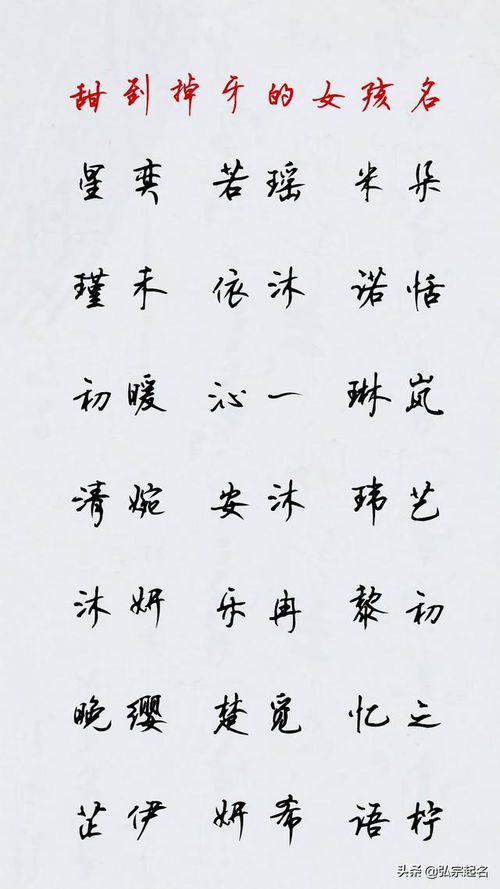 甜到掉牙的女孩名
星奕 若瑶 米朵
瑾未 依沐 诺恬
初暖 沁一 琳岚
清婉 安沐 玮艺
沐妍 乐冉 黎初
晚缨 楚觅 忆之
芷伊 妍希 语柠
头条@弘宗起名